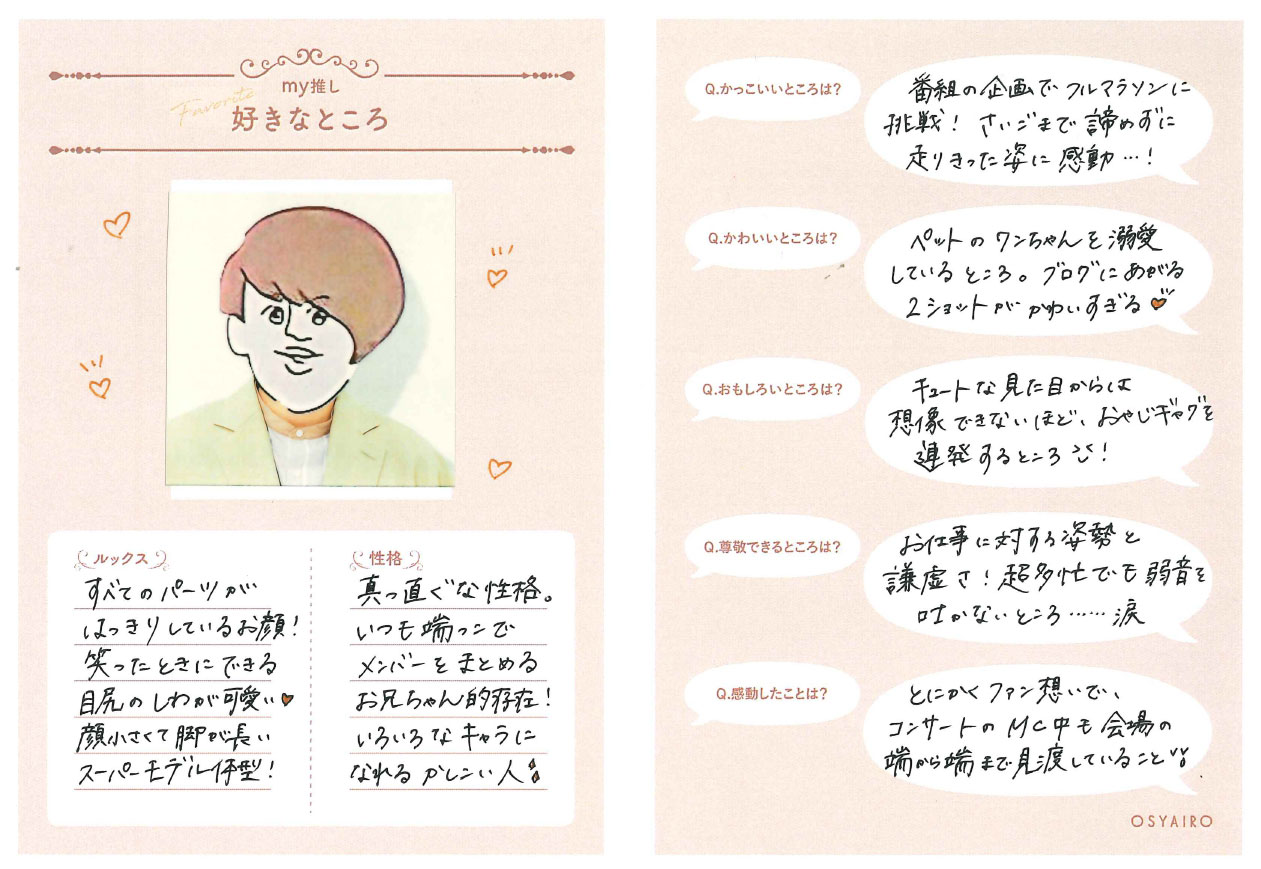 my推し
Favorite
好きなところ
ルックス
すべてのパーツが
はっきりしているお顔!
笑ったときにできる
目尻のしわが可愛い
顔小さくて脚が長い
スーパーモデル体型!
性格
真っ直ぐな性格。
いつも端っこで
メンバーをまとめる
お兄ちゃん的存在!
いろいろなキャラに
なれるかしこい人
Q.かっこいいところは?
番組の企画でフルマラソンに
挑戦! さいごまで諦めずに
走りきった姿に感動…!
Q.かわいいところは?
ペットのワンちゃんを溺愛
しているところ。ブログにあがる
2ショットがかわいすぎる
Q.おもしろいところは?
チュートな見た目からは
想像できないほど、おやじギャグを
連発するところ!
Q.尊敬できるところは?
お仕事に対する姿勢と
謙虚さ!超多忙でも弱音を
吐かないところ……涙
Q.感動したことは?
とにかくファン想いで、
コンサートのMC中も会場の
端から端まで見渡していること
OSYAIRO